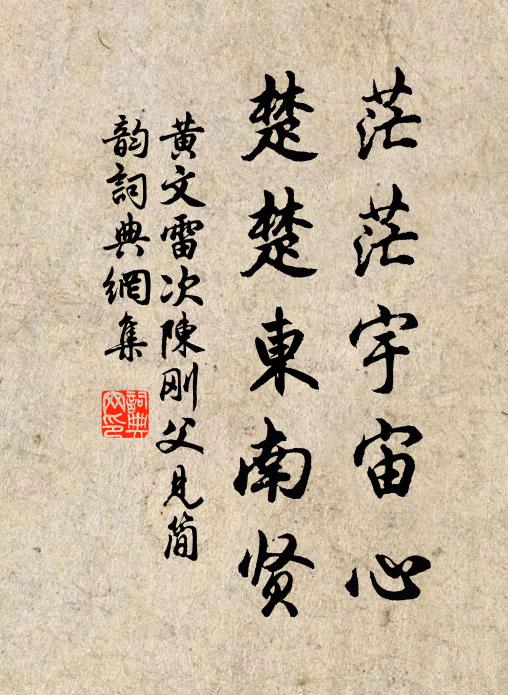 茫茫宇宙心
楚楚東南贤
黄文雷次陳刚父見简
韵詞典網集
詞典
网印